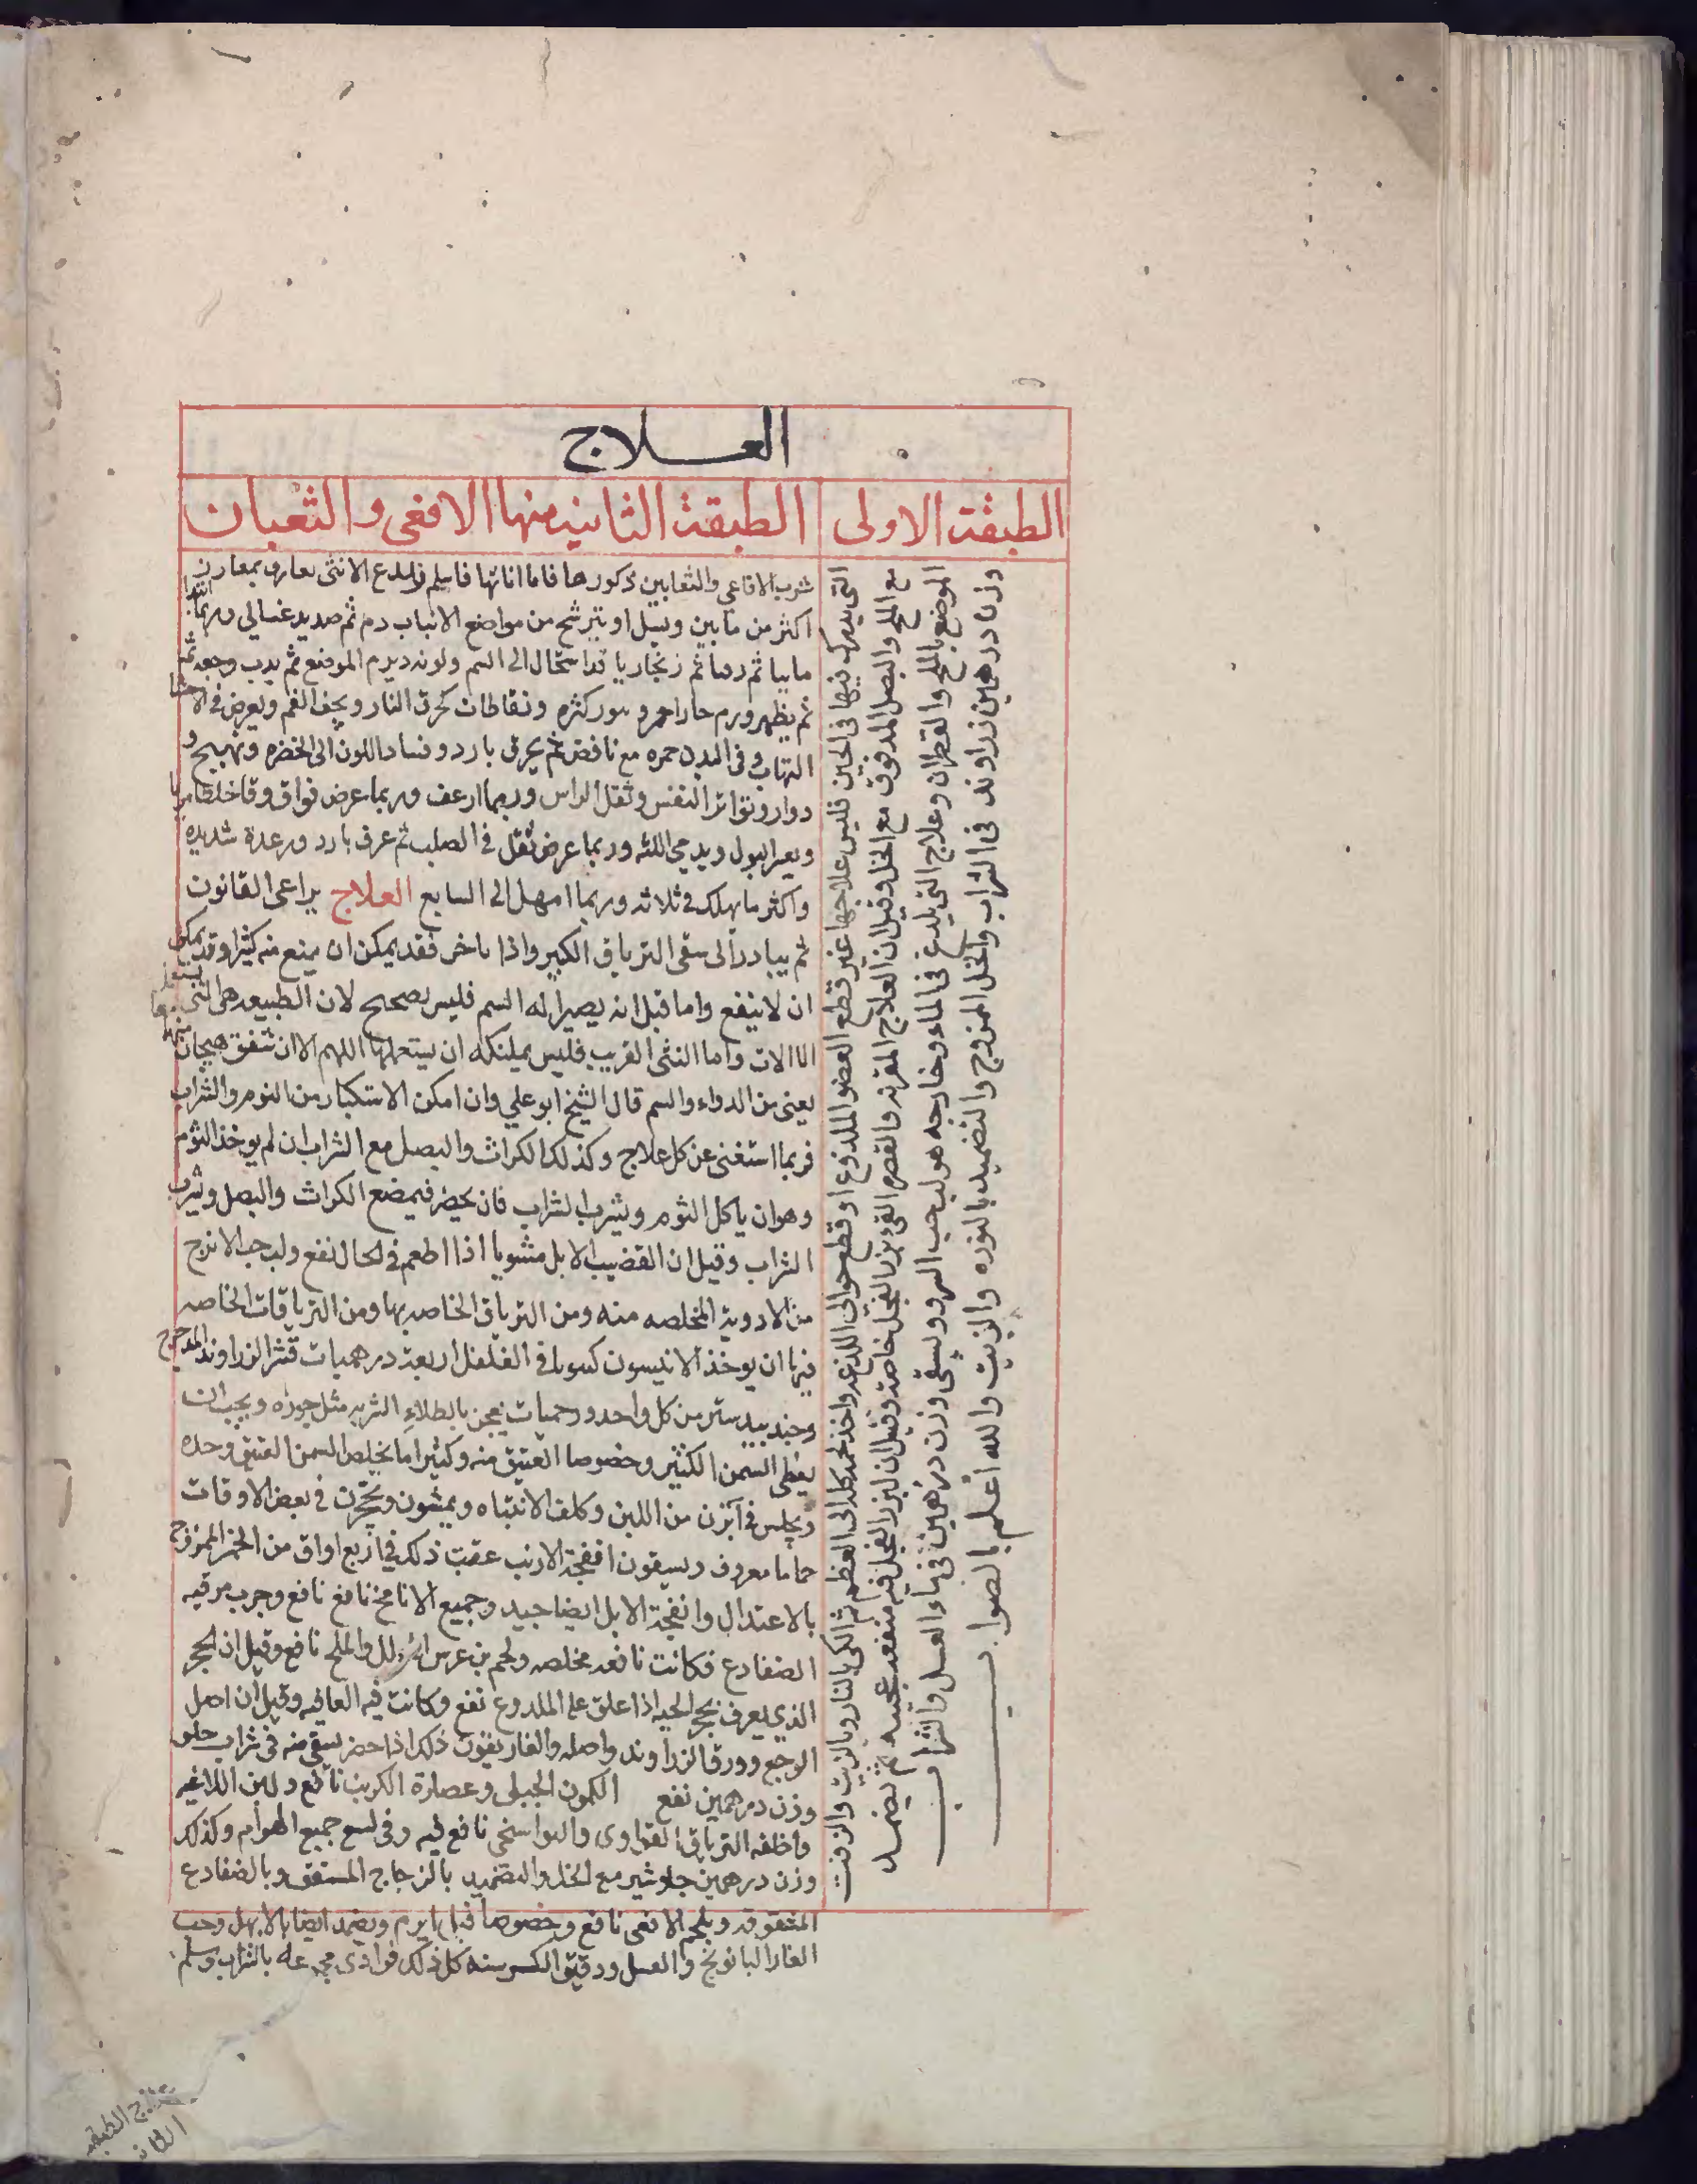 العلاج
الطبقة الاولى
الطبقة الثانيه منها الافعى والثعبان
التى يدرك فيها فى الحين فليس علاجها غير قطع العضو الملدوغ او قطع حوالى اللدغه واخذ لحمه كله الى العظم ثم الكى بالنار وبالزيت والزفت
مع الملح والبصل المدقوق مع الخل وقيل ان العلاج القى بزر الفجل خاصة وقيل ان لبزر الفجل فيه منفعه عجيبه ثم يضمد
الموضع بالملح والقطران وعلاج التى يلدغ فى الماء وخارجه هو لب حب السرو ويسقى وزن درهمين فى ماء العسل والشراب
وزن درهمين زراوند فى الشراب والخل الممزوج والتضميد بالنوره والزيت والله اعلم بالصواب
شرب الافاعى والثعابين ذكورها فاما اناثها فاسلم لدغ الانثى يعارف بمغارز
اكثر من نابين ويسيل او يترشح من مواضع الانياب دم ثم صديد غسالى وربما
مايا ثم ثم زنجاريا قد استحال الى السم ولونه ويرم الموضع ثم يدب وجعه
ثم يظهر ورم حار احمر وبثور كثره ونفاطات كحرق النار ويجف الفم ويعرض فى الاحشا
التهاب وفى البدن حمره مع نافض ثم عرق بارد وفساد اللون الى الخضره وتهييج و
دوار وتواتر النفس وثقل الراس وربما ارعف وربما عرض فواق وقا خلطا
وبعسر البول ويدمى اللثه وربما عرض ثقل فى الصلب ثم عرق بارد ورعدة شديده
واكثر ما يهلك فى ثلاثه وربما امهل الى السابع العلاج يراعى القانون
ثم يبادر الى سقى الترياق الكبير واذا تاخر فقد يمكن ان يمنع منه كثيرا وقد يمكن
ان لا ينفع واما قيل انه يصير اله السم فليس بصحيح لان الطبيعه هى التى
الالات واما النثى الغريب فليس يمكنه ان يستعملها اللهم الا ان تتفق هيجان
يعنى من الدواء والسم قال الشيخ ابو على وان امكن الاستكثار من الثوم والشراب
فربما استغنى عن كل علاج وكذلك الكراث والبصل مع الشراب ان لم يوخذ الثوم
وهو ان ياكل الثوم ويشرب الشراب فان يحضر فيمضع الكراث والبصل ويشرب
الشراب وقيل ان القضيب الابل مشويا اذا اطعم فى الحال نفع ولب حب الاترج
من الادوية المخلصه منه ومن الترياق الخاصه بها ومن الترياقات الخاصه
فيها ان يوخذ الانيسون فلفل اربعة درهميات قشر الزراوند المدحرج
وجندبيدستر من كل واحد درخميات يعجن بالطلاء الشربه مثل جوزه ويجب ان
يعطى السمن الكثير وخصوصا العتيق منه وكثيرا ما يخلص السمن العتيق وحده
ويجلس فى آبزن من اللبن وكلف الانتباه ويمشون فى بعض الاوقات
حماما معروف ويسقون انفحة الارنب عقب ذلك فى اربع اواق من الخمر الممزوج
بالاعتدال وانفحة الابل ايضا جيد وجميع الانافح نافع وجرب مرقه
الضفادع فكانت نافعه مخلصه ولحم بن عرس والملح نافع وقيل ان الحجر
الذى يعرف بحجر الحيه اذا علق على الملدوغ نفع وكانت فيه العافيه وقيل ان اصل
الوج وورق الزراوند واصله والغاريقون ذلك اذا حضر يسقى منه فى شراب حلو
وزن درهمين نفع الكمون الجبلى وعصارة الكرنب نافع ولبن اللاغيه
واظفه الترياق الفزاوى والبواسخى نافع فيه وفى لسع جميع الهوام وكذلك
وزن درهمين جاوشير مع الخل والتضميد بالزجاج المستفق وبالضفادع
المشقوقه وبلحم الافعى نافع وخصوصا قبل ان يرم ويضمد ايضا بالابهل وحب
الغار البابونج والعسل ودقيق الكرسنه كل ذلك فرادى بالشراب وسلم
علاج الطبقه